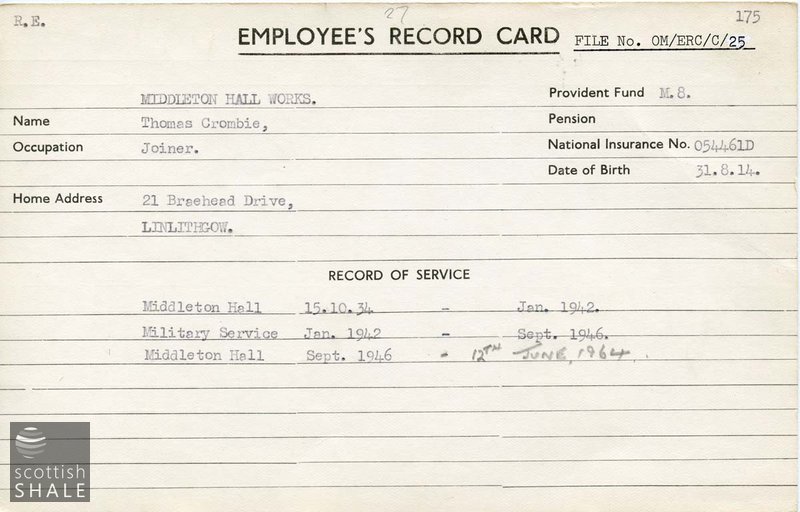 R.E.
27
175
EMPLOYEE'S RECORD CARD FILE No. OM/ERC/C/25
MIDDLETON HALL WORKS. Provident Fund M.8.
Name Thomas Crombie, Pension
Occupation Joiner. National Insurance No. 054461D
Date of Birth 31.8.14.
Home Address 21 Braehead Drive,
LINLITHGOW.
RECORD OF SERVICE
Middleton Hall 15.10.34 - Jan. 1942.
Military Service Jan. 1942 - Sept. 1946.
Middleton Hall Sept. 1946 - 12TH JUNE, 1964.
scottish
SHALE